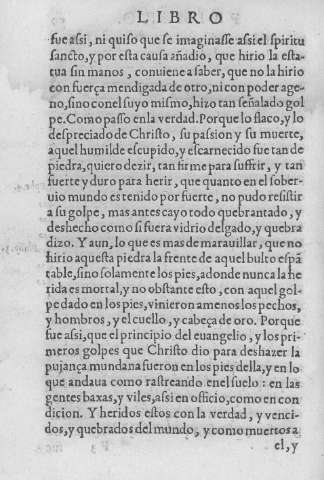 LIBRO
fue assi, ni quiso que se imaginasse assi el spiritu
sancto, y por esta causa añadio, que hirio la esta-
tua sin manos, conuiene a saber, que no la hirio
con fuerça mendigada de otro, ni con poder age-
no, sino con el suyo mismo, hizo tan señalado gol
pe. Como passo en la verdad. Porque lo flaco, y lo
despreciado de Christo, su passion y su muerte,
aquel humilde escupido, y escarnecido fue tan de
piedra, quiero dezir, tan firme para suffrir, y tan
fuerte y duro para herir, que quanto en el sober-
uio mundo es tenido por fuerte, no pudo resistir
a su golpe, mas antes cayo todo quebrantado, y
deshecho como si fuera vidrio delgado, y quebra
dizo. Y aun, lo que es mas de marauillar, que no
hirio aquesta piedra la frente de aquel bulto espã
table, sino solamente los pies, adonde nunca la he
rida es mortal, y no obstante esto, con aquel gol-
pe dado en los pies, vinieron a menos los pechos,
y hombros, y el cuello, y cabeça de oro. Porque
fue assi, que el principio del euangelio, y los pri-
meros golpes que Christo dio para deshazer la
pujança mundana fueron en los pies della, y en lo
que andaua como rastreando en el suelo: en las
gentes baxas, y viles, assi en officio, como en con
dicion. Y heridos estos con la verdad, y venci-
dos, y quebrados del mundo, y como muertos a
el, y